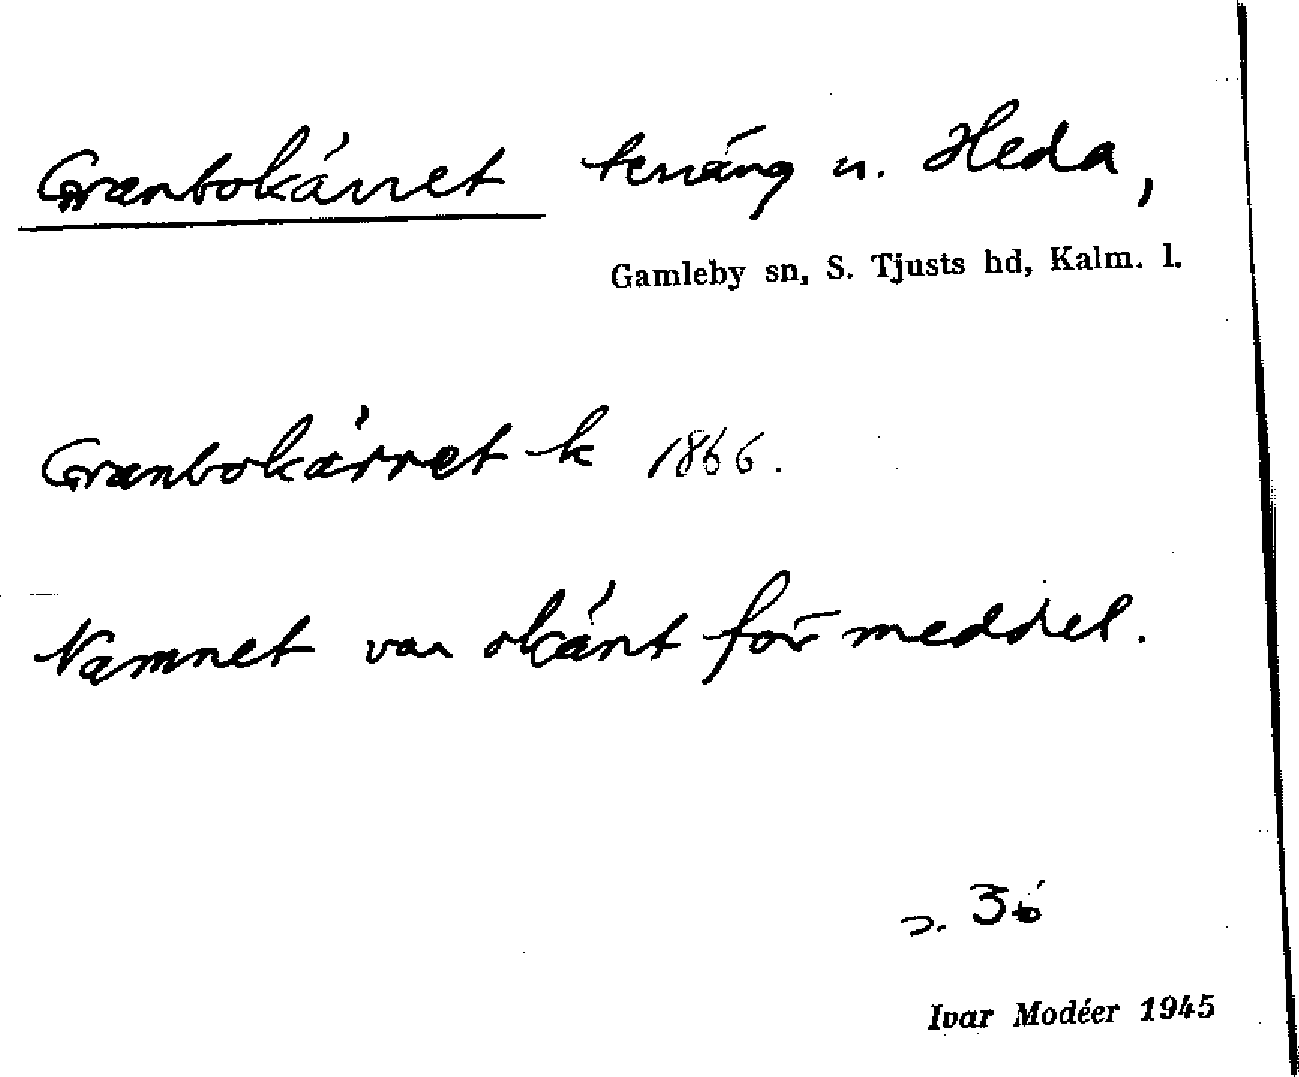 Granbokärret teräng u. Heda,
Gamleby sn, S. Tjusts hd, Kalm. l.
Granbokärret k 1866.
Namnet var okänt för meddel.
s. 36
Ivar Modéer 1945